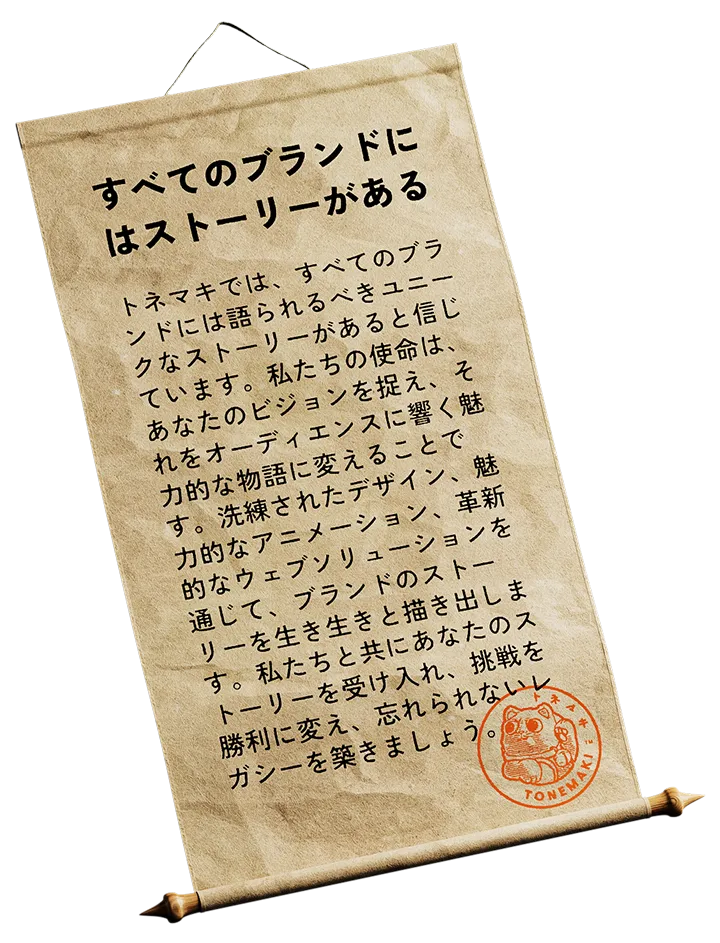 すべてのブランドに
はストーリーがある
トネマキでは、すべてのブラ
ンドには語られるべきユニー
クなストーリーがあると信じ
ています。私たちの使命は、
あなたのビジョンを捉え、そ
れをオーディエンスに響く魅
力的な物語に変えることで
す。洗練されたデザイン、魅
力的なアニメーション、革新
的なウェブソリューションを
通じて、ブランドのストー
リーを生き生きと描き出しま
す。私たちと共にあなたのス
トーリーを受け入れ、挑戦を
勝利に変え、忘れられないレ
ガシーを築きましょう。
トネマキ
TONEMAKI